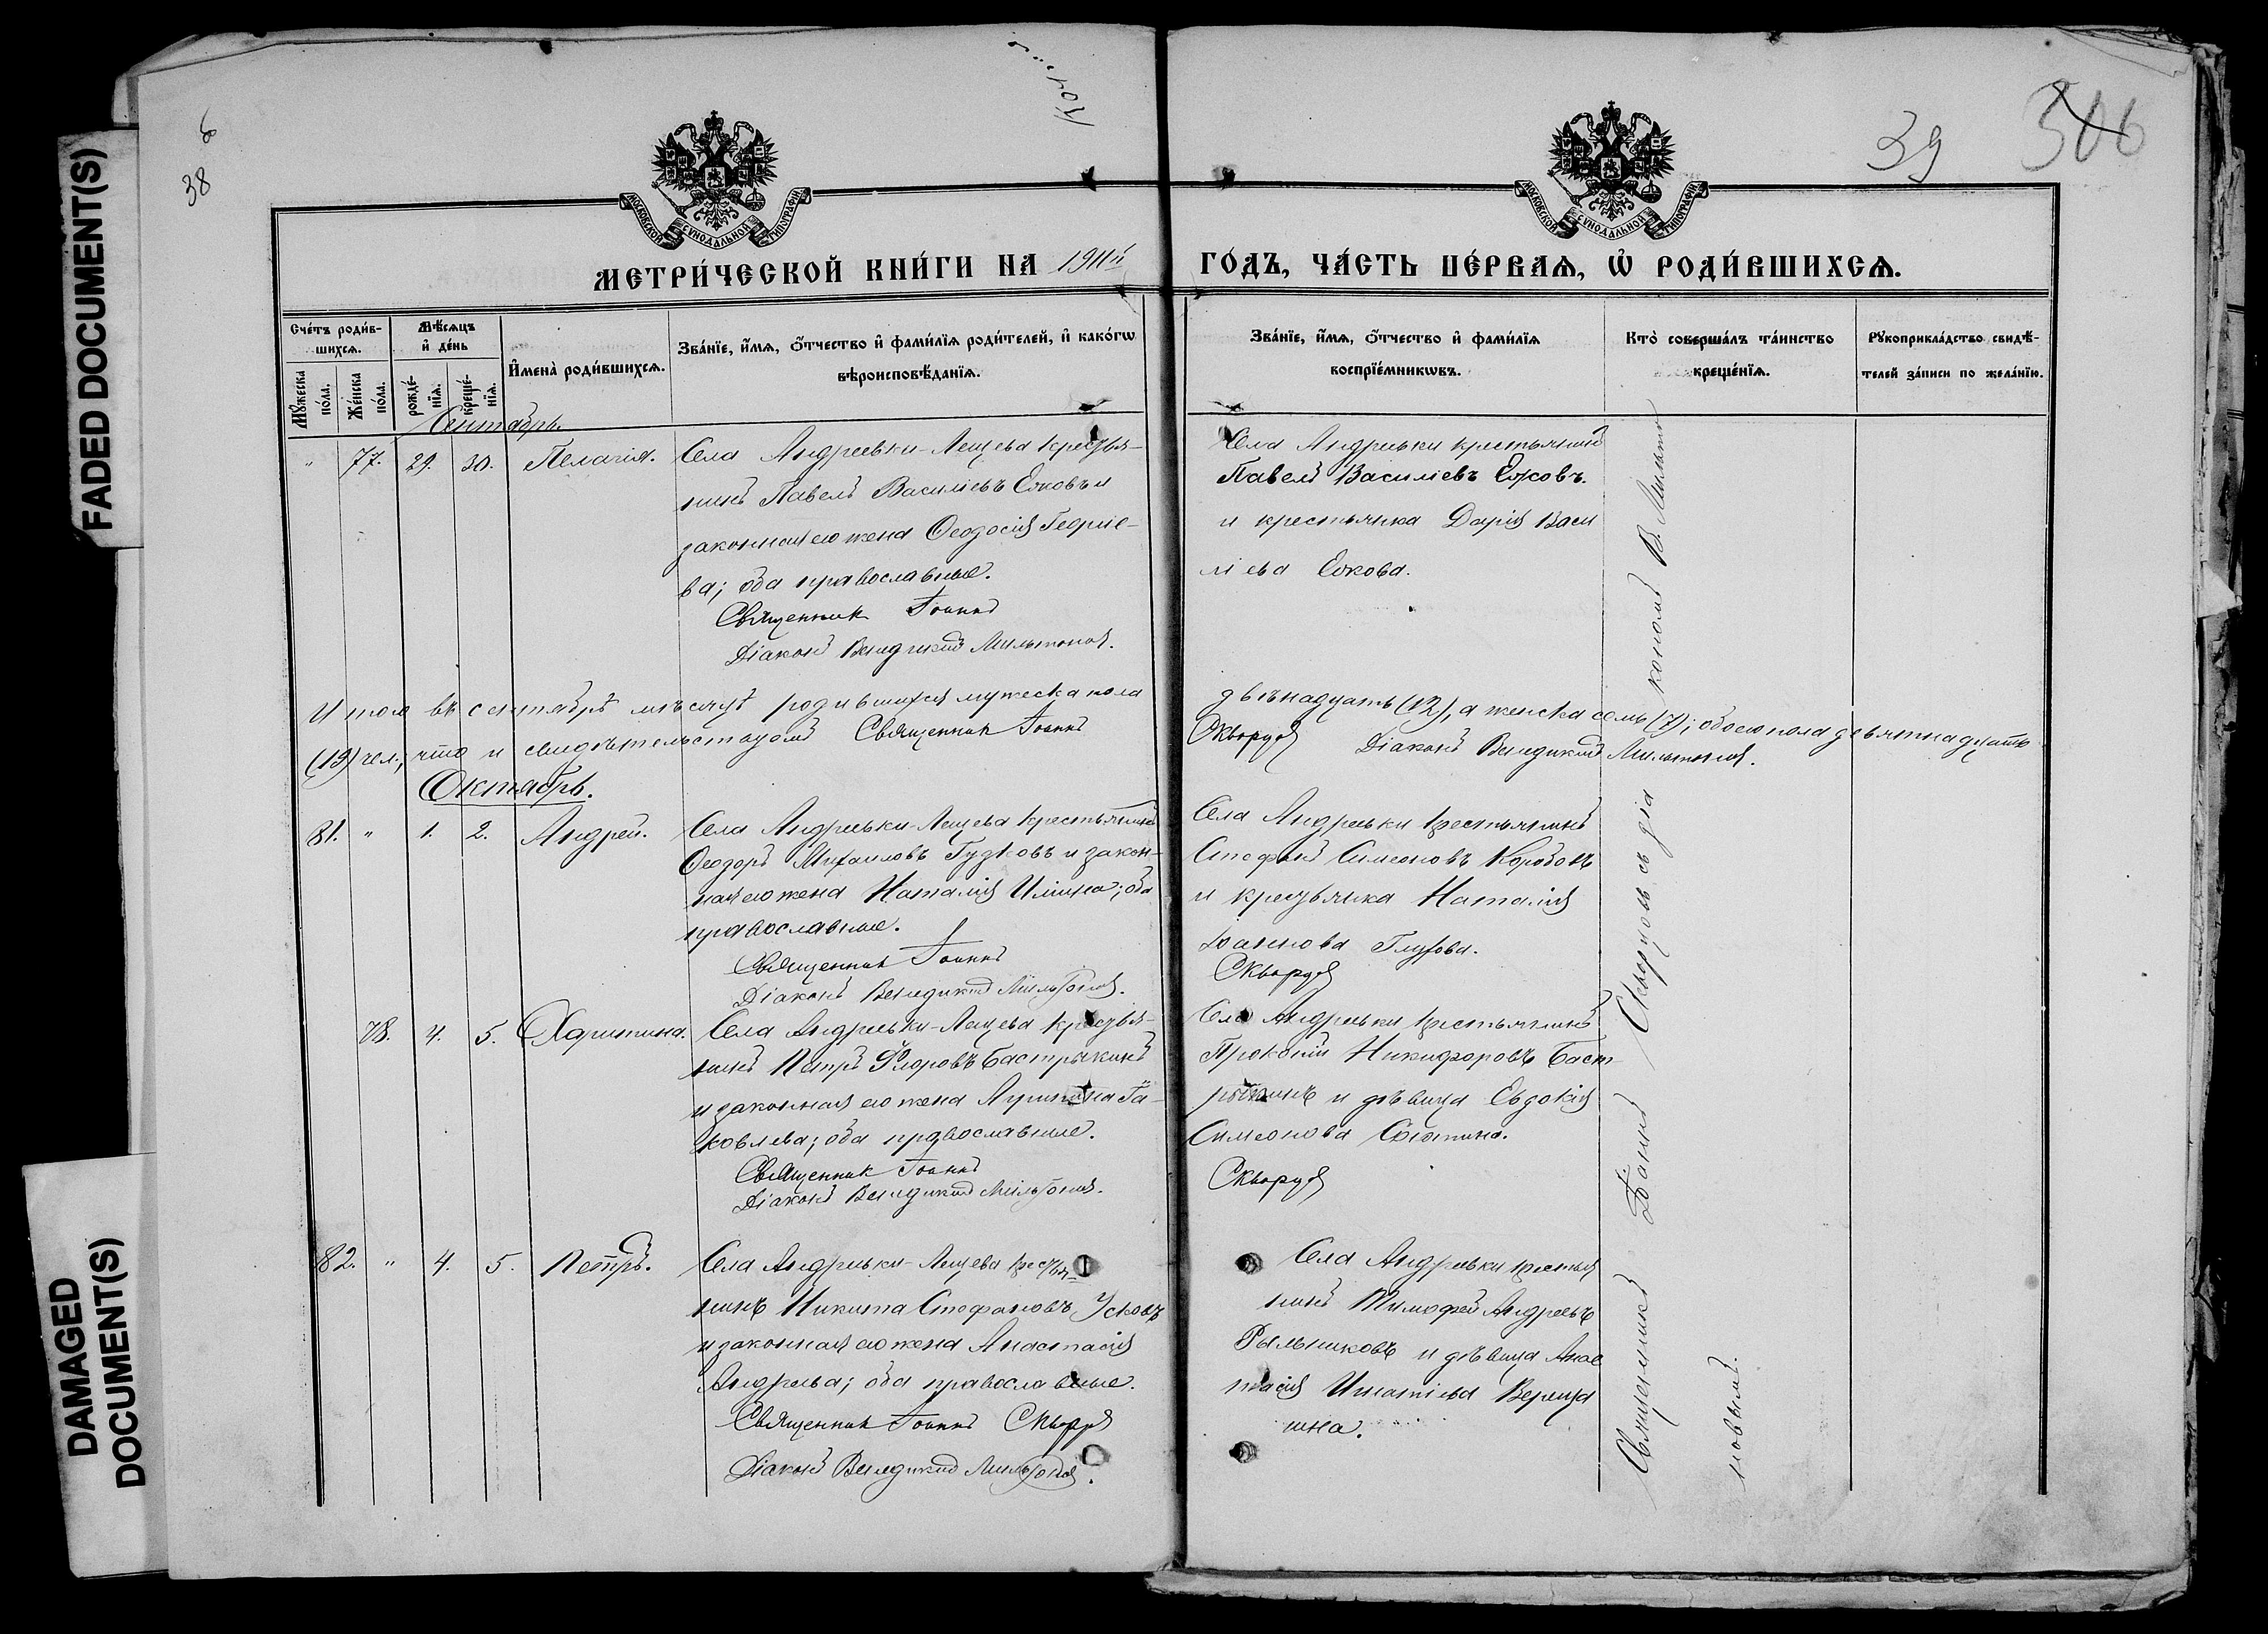 FADED DOCUMENT(S)
DAMAGED
DOCUMENT(S)
38
39
306
МОСКОВСКОЙ СѴНОДАЛЬНОЙ ТИПОГРАФІИ
МОСКОВСКОЙ СѴНОДАЛЬНОЙ ТИПОГРАФІИ
МЕТРИ́ЧЕСКОЙ КНИ́ГИ НА 1911й ГО́ДЪ, ЧА́СТЬ ПЕ́РВАѦ, Ѡ҆ РОДИ́ВШИХСѦ.
Сче́тъ роди́в-
шихсѧ.
Мꙋ́жеска
по́ла.
Же́нска
по́ла.
Мѣ́сѧцъ
и҆ де́нь
рожде́-
нїѧ.
креще́-
нїѧ.
И҆мена̀ роди́вшихсѧ.
Зва́нїе, и҆́мѧ, о҆́тчество и҆ фами́лїѧ роди́телей, и҆ како́гѡ
вѣроисповѣ́данїѧ.
Зва́нїе, и҆́мѧ, о҆́тчество и҆ фами́лїѧ
воспрїе́мникѡвъ.
Кто̀ соверша́лъ та́инство
креще́нїѧ.
Рꙋкоприкла́дство свидѣ́-
телей за́писи по жела́нїю.
Сентябрь.
" 77. 29. 30. Пелагія.
Села Андреевки-Лещева крестья-
нинъ Павелъ Василіевъ Ежовъ и
законная его жена Ѳеодосія Георгіе-
ва; оба православные.
Священник Іоаннъ
Діаконъ Венедиктъ Мильтоновъ.
Села Андреевки крестьянинъ
Павелъ Василіевъ Ежовъ.
и крестьянка Дарія Васи
ліева Ежова.
Итого въ сентябрѣ мѣсяцѣ родившихся мужеска пола двѣнадцать (12), а женска семь (7); обоего пола девятнадцать
(19) чел., что и свидѣтельствуемъ Священник Іоаннъ Скворцовъ Діаконъ Венедиктъ Мильтоновъ.
Октябрь.
81. " 1. 2. Андрей.
Села Андреевки-Лещева крестьянинъ
Ѳеодоръ Михаиловъ Гудковъ и закон-
ная его жена Наталія Иліина; оба
православные.
Священник Іоаннъ
Діаконъ Венедиктъ Мильтоновъ.
Села Андреевки крестьянинъ
Стефанъ Симеоновъ Коробовъ
и крестьянка Наталія
Іоаннова Глухова.
Скворцовъ
78. 4. 5. Харитина.
Села Андреевки-Лещева крестья-
нинъ Петръ Ѳедоровъ Бастрыкинъ
и законная его жена Агрипина Іа-
ковлева; оба православные.
Священник Іоаннъ
Діаконъ Венедиктъ Мильтоновъ.
Села Андреевки крестьянинъ
Прокопій Никифоровъ Баст
рыкинъ и дѣвица Евдокія
Симеонова
Скворцовъ
82. " 4. 5. Петръ.
Села Андреевки-Лещева крестья-
нинъ Никита Стефановъ Усковъ
и законная его жена Анастасія
Андреева; оба православные.
Священник Іоаннъ Скворцовъ
Діаконъ Венедиктъ Мильтоновъ.
Села Андреевки крестья
нинъ Тимофей Андреевъ
Рыльниковъ и дѣвица Анас
тасія Игнатіева Вереща
гина.
Священникъ Іоаннъ Скворцовъ съ діакономъ В. Мильто
новымъ.